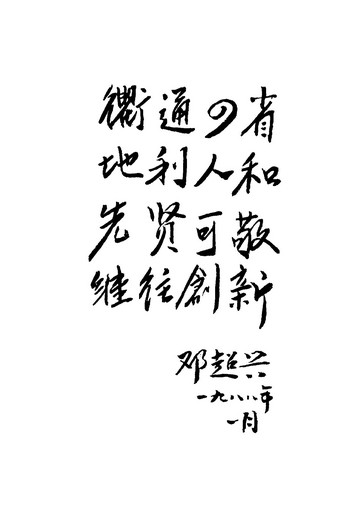 衢通四省
地利人和
先贤可敬
继往創新
邓超兴
一九八八年
一月